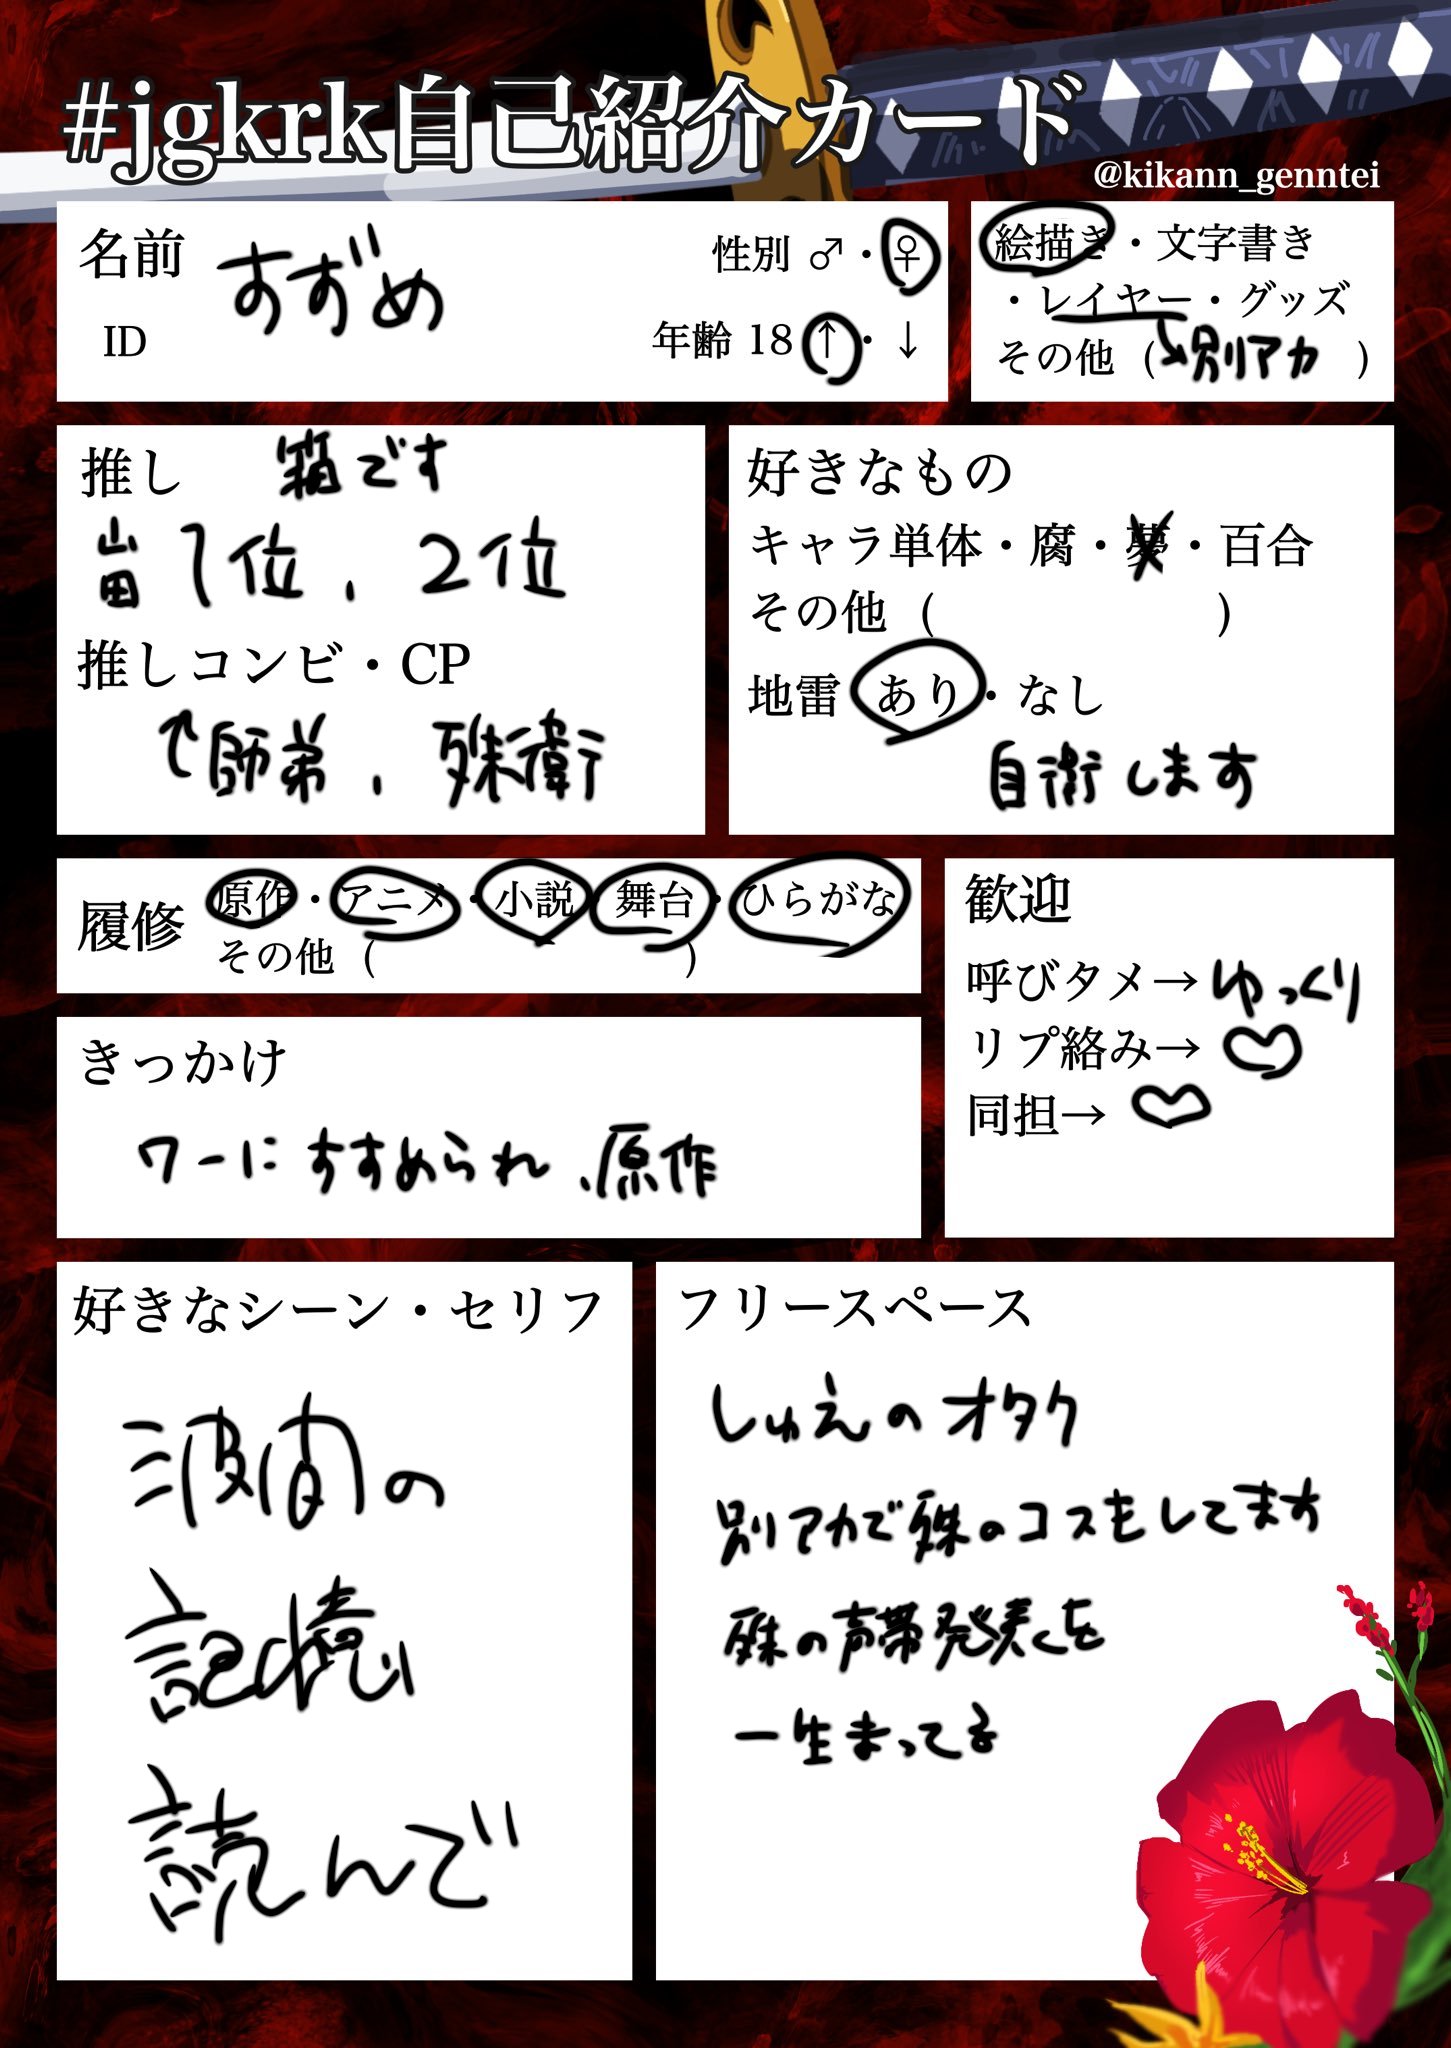 #jgkrk自己紹介カード
@kikann_genntei
名前 すずめ 性別 ♂・♀
ID 年齢 18 ↑・↓
絵描き・文字書き
・レイヤー・グッズ
その他（→別アカ ）
推し 箱です
1位、2位
推しコンビ・CP
↑師弟、殊衛
好きなもの
キャラ単体・腐・夢・百合
その他（ ）
地雷 あり・なし
自衛します
履修 原作・アニメ・小説・舞台・ひらがな
その他（ ）
歓迎
呼びタメ→ゆっくり
リプ絡み→♡
同担→♡
きっかけ
ワーにすすめられ、原作
好きなシーン・セリフ
波間の
記憶
読んで
フリースペース
しゅえのオタク
別アカで殊のコスもしてます
殊の声帯発表を
一生まってる